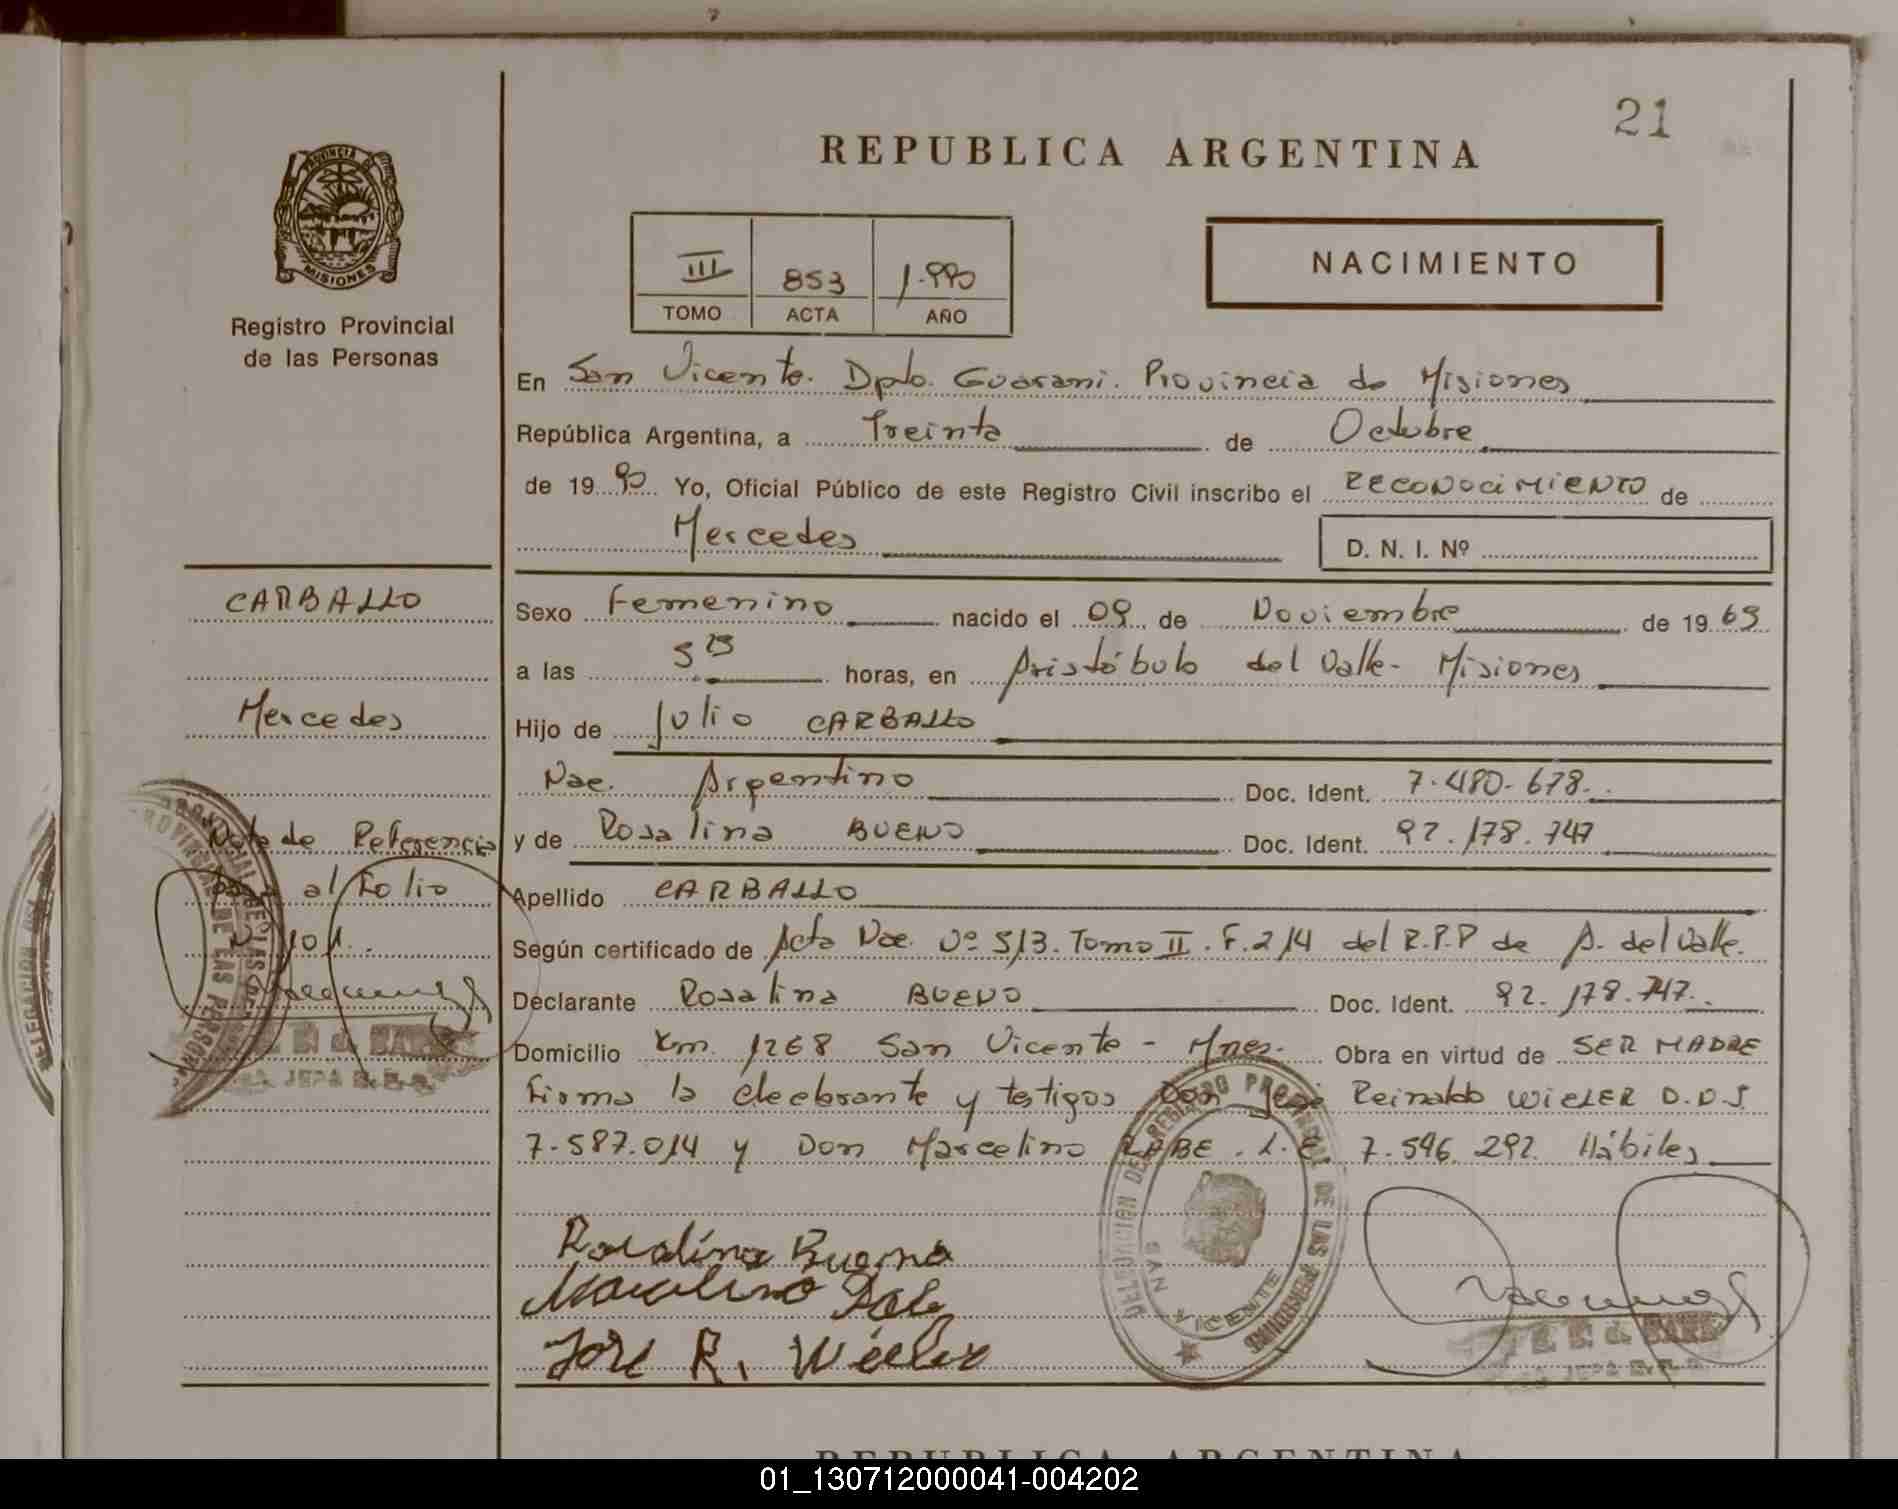 21
REPUBLICA ARGENTINA
PROVINCIA DE
MISIONES
Registro Provincial
de las Personas
III 853 1.990
TOMO ACTA AÑO
NACIMIENTO
En San Vicente. Dpto. Guarani. Provincia de Misiones
República Argentina, a Treinta de Octubre
de 1990 Yo, Oficial Público de este Registro Civil inscribo el RECONOCIMIENTO de
Mercedes
D. N. I. Nº
CARBALLO
Mercedes
Nota de Referencia
al Folio
Sexo Femenino nacido el 09 de Noviembre de 1969
a las horas, en Aristóbulo del Valle- Misiones
Hijo de Julio CARBALLO
Nac. Argentino Doc. Ident. 7.480.678.
y de Rosalina BUENO Doc. Ident. 92.178.747
Apellido CARBALLO
Según certificado de Acta Nac. Nº 513. Tomo II. F. 214 del R.P.P de A. del Valle.
Declarante Rosalina BUENO Doc. Ident. 92.178.747.
Domicilio Km. 1268 San Vicente - Mnes. Obra en virtud de SER MADRE
Firma la y testigos Don José Reinaldo WIELER D.N.I.
7.587.014 y Don Marcelino RABE. L.E. 7.546.292. Hábiles
Rosalina Bueno
Marcelino Rabe
José R. Wieler
DELEGACION DEL REGISTRO PROVINCIAL DE LAS PERSONAS
SAN VICENTE
REPUBLICA ARGENTINA
01_130712000041-004202